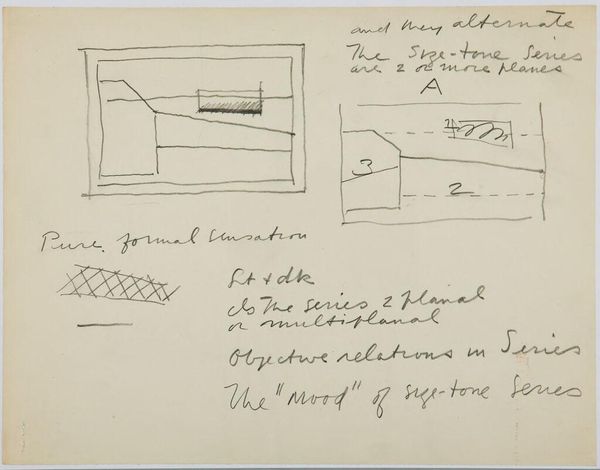 and they alternate
The size-tone series
are 2 or more planes
A
2
3
2
Pure formal sensation
Lt + dk
Is the series 2 planal
or multiplanal
Objective relations in Series
The "Mood" of size-tone series